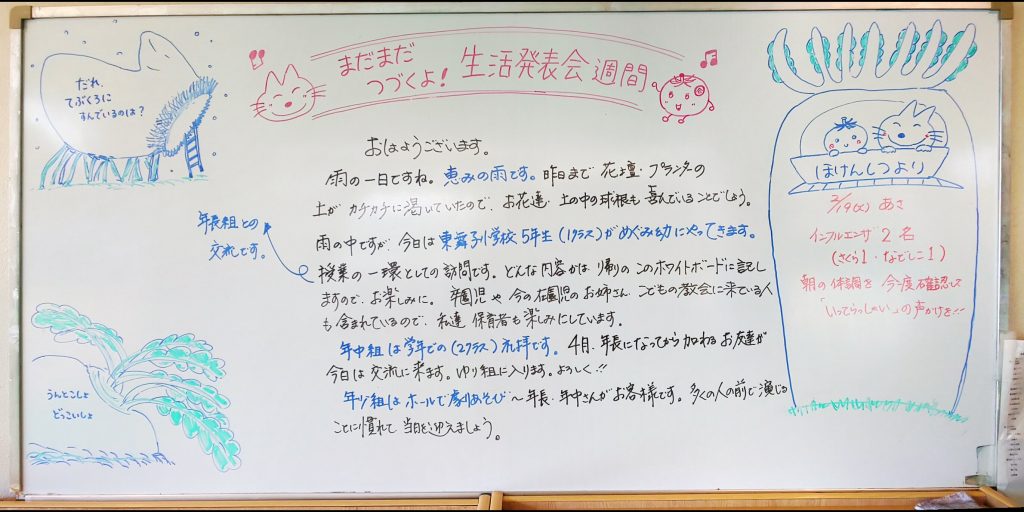 まだまだ
つづくよ! 生活発表会週間
だれ、
てぶくろに
すんでいるのは?
おはようございます。
雨の一日ですね。恵みの雨です。昨日まで花壇・プランターの
土がカチカチに渇いていたので、お花達・土の中の球根も喜んでいることでしょう。
雨の中ですが、今日は東舞子小学校5年生(1クラス)がめぐみ幼にやってきます。
年長組との
交流です。
授業の一環としての訪問です。どんな内容かは帰りのこのホワイトボードに記し
ますので、お楽しみに。卒園児や今の在園児のお姉さん、こどもの教会に来ている人
も含まれているので、私達保育者も楽しみにしています。
年中組は学年での(2クラス)礼拝です。4月、年長になってから加わるお友達が
今日は交流に来ます。ゆり組に入ります。よろしく!!
年少組はホールで劇あそび〜年長・年中さんがお客様です。多くの人の前で演じる
ことに慣れて、当日を迎えましょう。
うんとこしょ
どっこいしょ
ほけんしつより
2/19(火) あさ
インフルエンザ 2名
(さくら1・なでしこ1)
朝の体調を今一度確認して
「いってらっしゃい」の声かけを!!